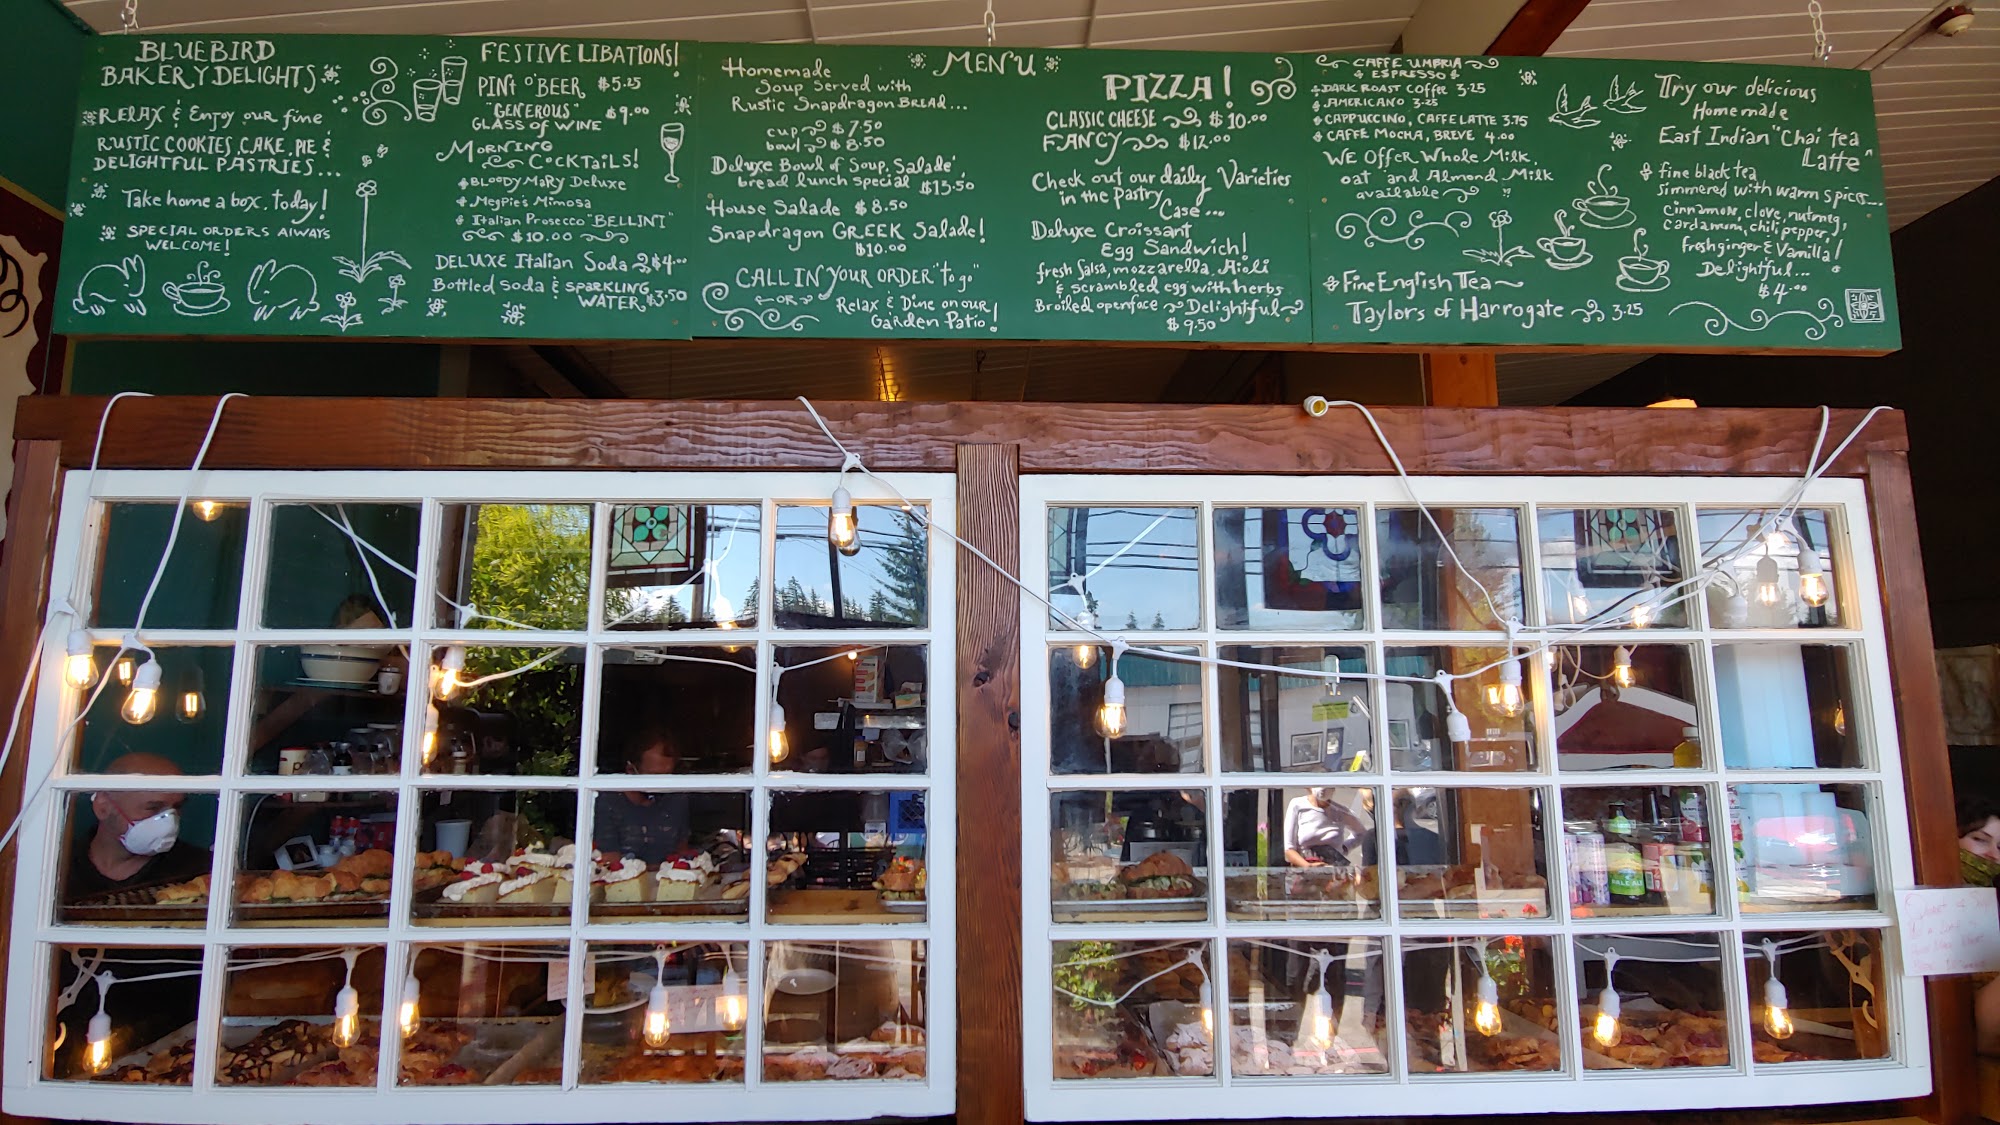 BLUEBIRD
BAKERY DELIGHTS
RELAX & Enjoy our fine
RUSTIC COOKIES, CAKE, PIE &
DELIGHTFUL PASTRIES...
Take home a box, today!
SPECIAL ORDERS Always
WELCOME!
FESTIVE LIBATIONS!
PINt O'BEER $5.25
"GENEROUS" $9.00
GLASS of WINE
MORNING
COCKTAiLS!
BLOODY MARY Deluxe
MegPie's Mimosa
Italian Prosecco "BELLINI"
$10.00
DELUXE Italian Soda $4.00
Bottled Soda & SPARKLING
WATER $3.50
MENU
Homemade
Soup Served with
Rustic Snapdragon BREAD...
cup $7.50
bowl $8.50
Deluxe Bowl of Soup, Salade,
bread lunch special $13.50
House Salade $8.50
Snapdragon GREEK Salade!
$10.00
CALL IN YOUR ORDER "to go"
OR
Relax & Dine on our
Garden Patio!
PIZZA!
CLASSIC CHEESE $10.00
FANCY $12.00
Check out our daily Varieties
in the Pastry
Case...
Deluxe Croissant
Egg Sandwich!
fresh Salsa, mozzarella, Aioli
& scrambled egg with herbs
Broiled openface Delightful
$9.50
CAFFE UMBRIA
ESPRESSO
DARK ROAST Coffee 3.25
AMERICANO 3.25
CAPPUCCINO, CAFFE LATTE 3.75
CAFFE MOCHA, BREVE 4.00
WE Offer Whole Milk,
oat and Almond Milk
available
Fine English Tea
Taylors of Harrogate 3.25
Try our delicious
Homemade
East Indian "Chai tea
Latte"
fine black tea
simmered with warm spices...
Cinnamon, clove, nutmeg,
Cardamum, chili pepper,
fresh ginger & Vanilla!
Delightful...
$4.00
PALE ALE